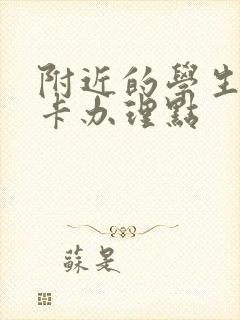 附近的學生
卡办理點
蘇是